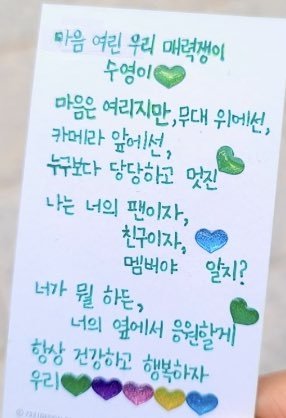 마음 여린 우리 매력쟁이
수영이
마음은 여리지만, 무대 위에선,
카메라 앞에선,
누구보다 당당하고 멋진
나는 너의 팬이자,
친구이자,
멤버야 알지?
너가 뭘 하든,
너의 옆에서 응원할게
항상 건강하고 행복하자
우리